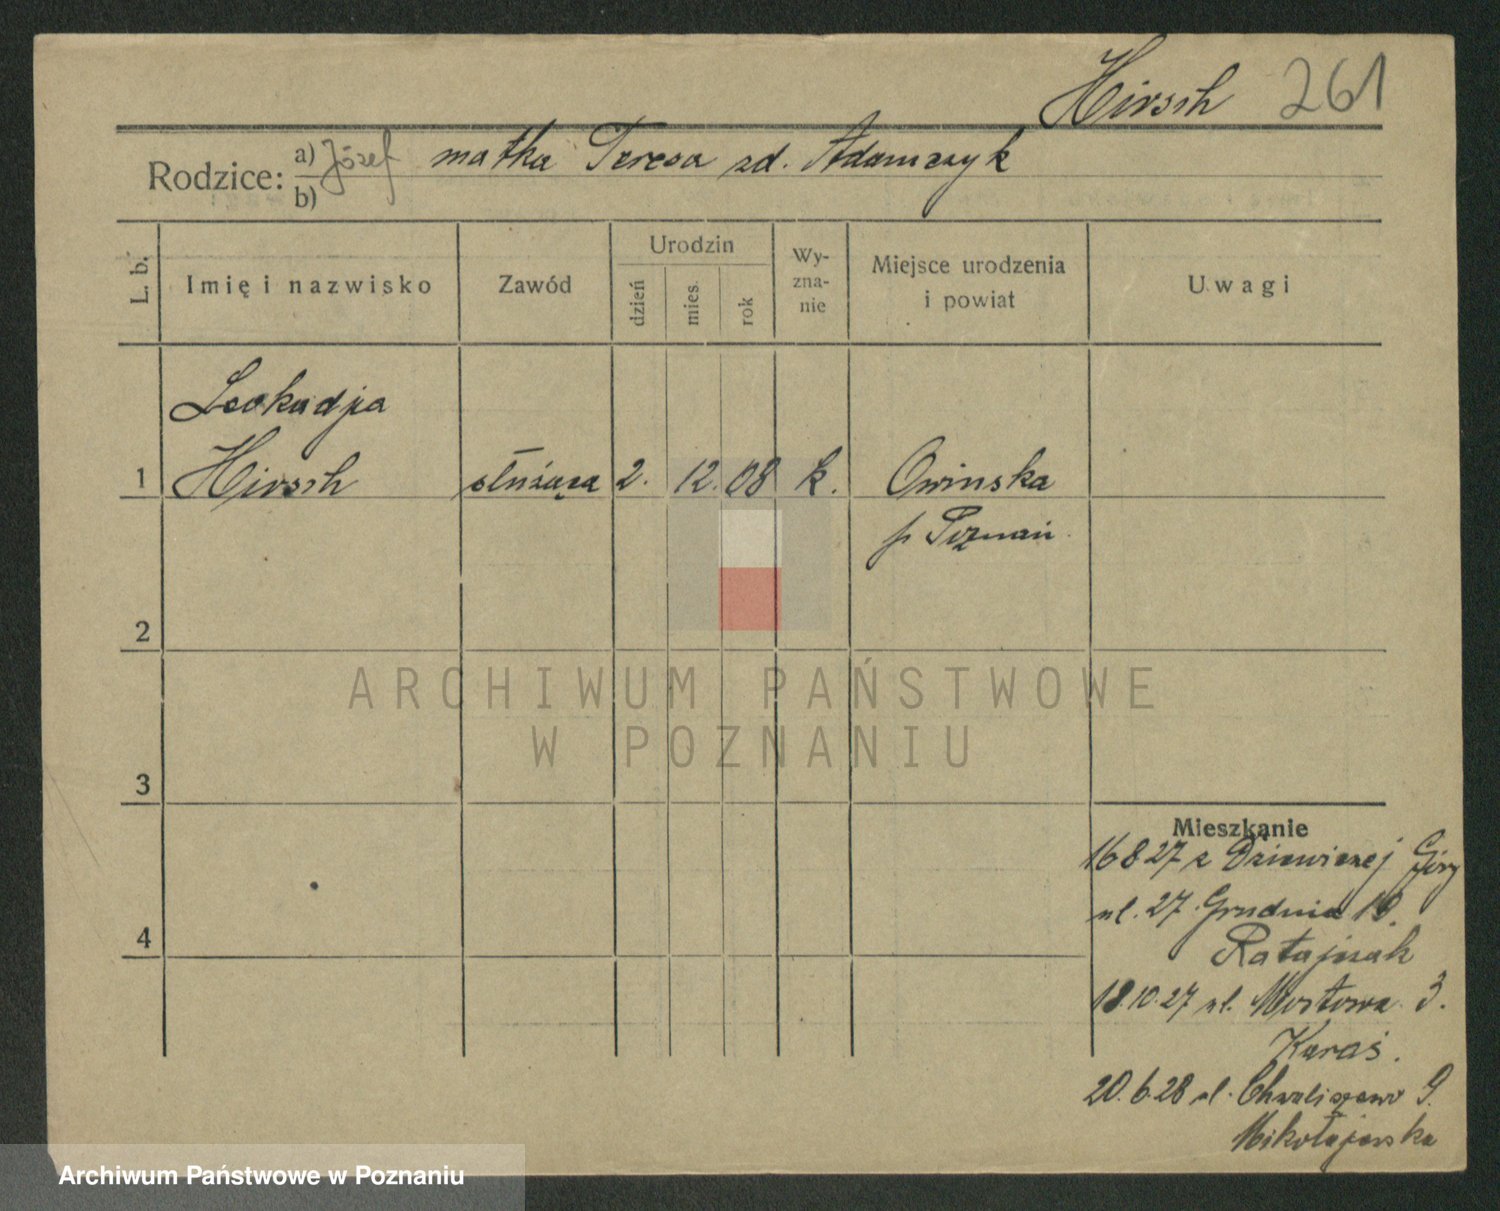 Hirsch 261
Rodzice: a) Józef matka Teresa zd. Adamczyk
b)
L. b. Imię i nazwisko Zawód Urodzin dzień mies. rok Wy-zna-nie Miejsce urodzenia i powiat Uwagi
Leokadja
1 Hirsch służąca 2. 12. 08 k. Owinska
p Poznań
2
ARCHIWUM PAŃSTWOWE
W POZNANIU
3
Mieszkanie
16 8 27 z Dziewiczej Góry
ul. 27 Grudnia 10.
Ratajczak
4
18.10.27 ul. Mostowa 3.
Karaś.
20.6.28 ul. Chwaliszewo 9.
Mikołajewska
Archiwum Państwowe w Poznaniu